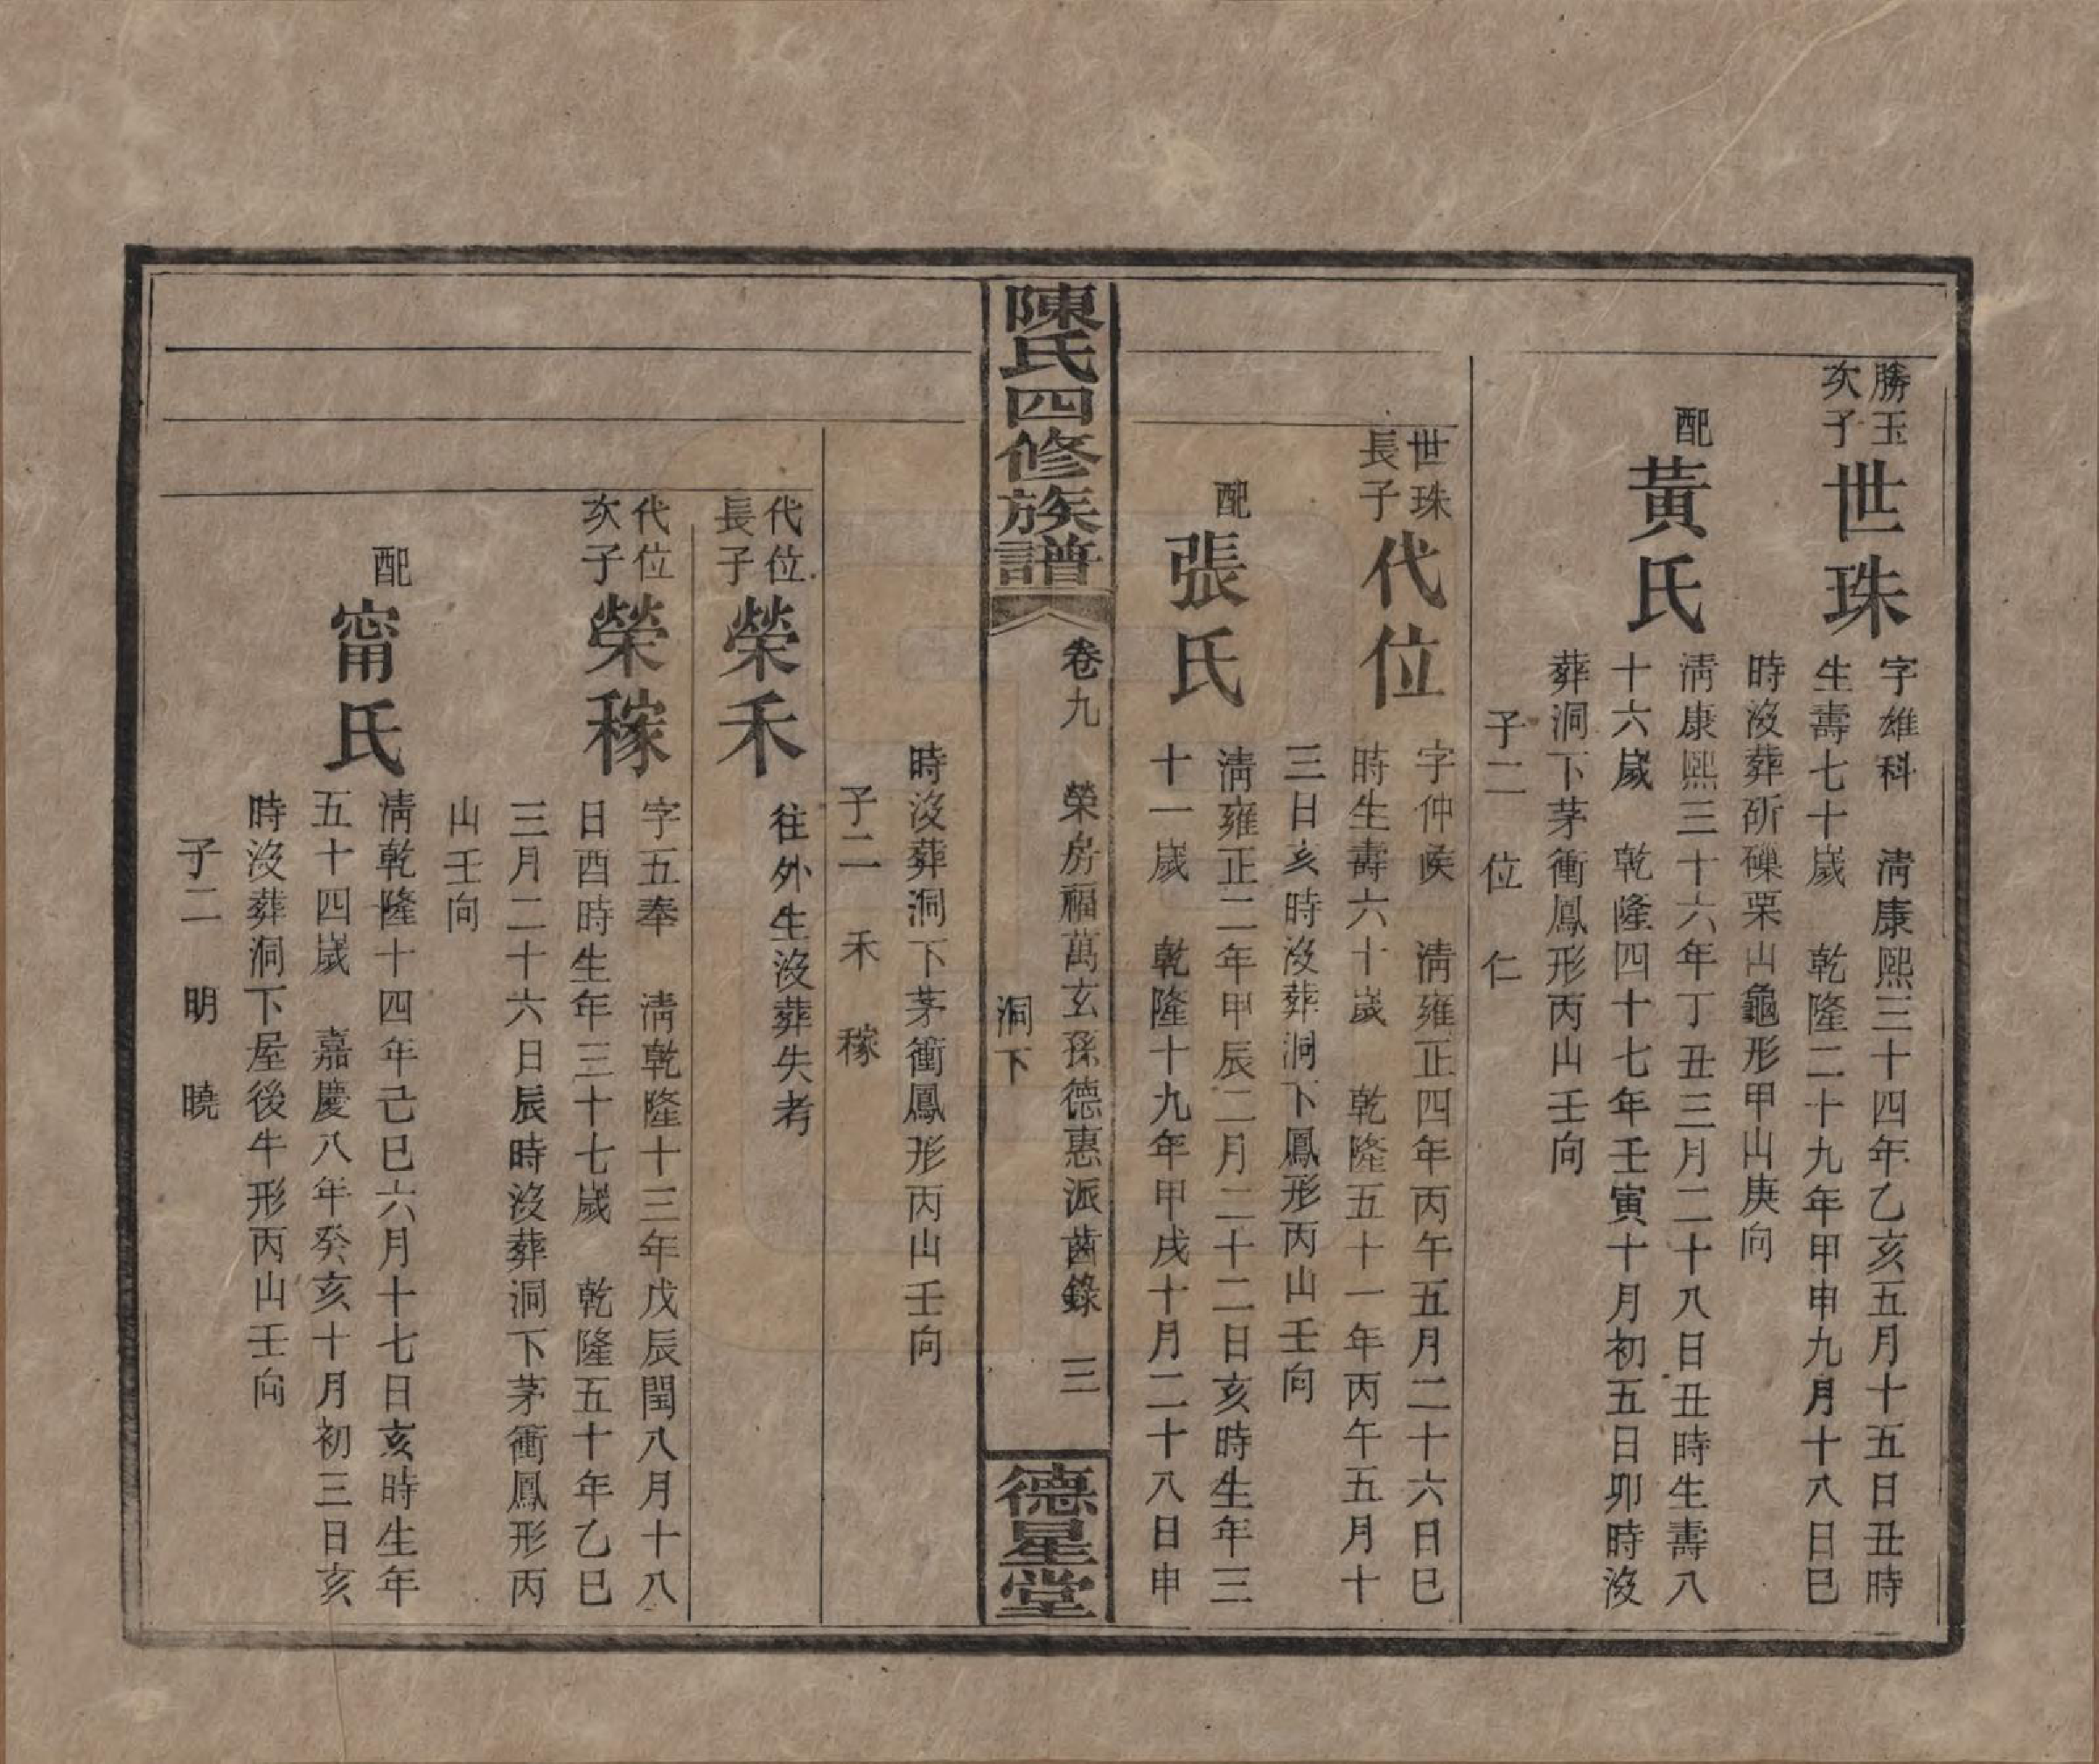 勝玉
次子
世珠
字雄科　清康熙三十四年乙亥五月十五日丑時
生壽七十歲　乾隆二十九年甲申九月十八日巳
時沒葬斫磏栗山龜形甲山庚向
配
黃氏
清康熙三十六年丁丑三月二十八日丑時生壽八
十六歲　乾隆四十七年壬寅十月初五日卯時沒
葬洞下茅衝鳳形丙山壬向
子二　位　仁
世珠
長子
代位
字仲　清雍正四年丙午五月二十六日巳
時生壽六十歲　乾隆五十一年丙午五月十
三日亥時沒葬洞下鳳形丙山壬向
配
張氏
清雍正二年甲辰二月二十二日亥時生年三
十一歲　乾隆十九年甲戌十月二十八日申
陳氏四修族譜
卷九　榮房福萬玄孫德惠派齒錄　三
洞下
德星堂
時沒葬洞下茅衝鳳形丙山壬向
子二　禾　稼
代位
長子
榮禾
往外生沒葬失考
代位
次子
榮稼
字五奉　清乾隆十三年戊辰閏八月十八
日酉時生年三十七歲　乾隆五十年乙巳
三月二十六日辰時沒葬洞下茅衝鳳形丙
山壬向
配
甯氏
清乾隆十四年己巳六月十七日亥時生年
五十四歲　嘉慶八年癸亥十月初三日亥
時沒葬洞下屋後牛形丙山壬向
子二　明　曉